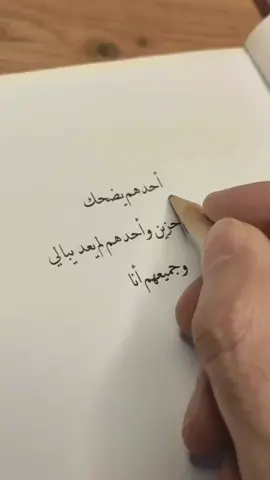 أحدهم يضحك
حزين وأحدهم لم يعد يبالي
وجميعهم أنا